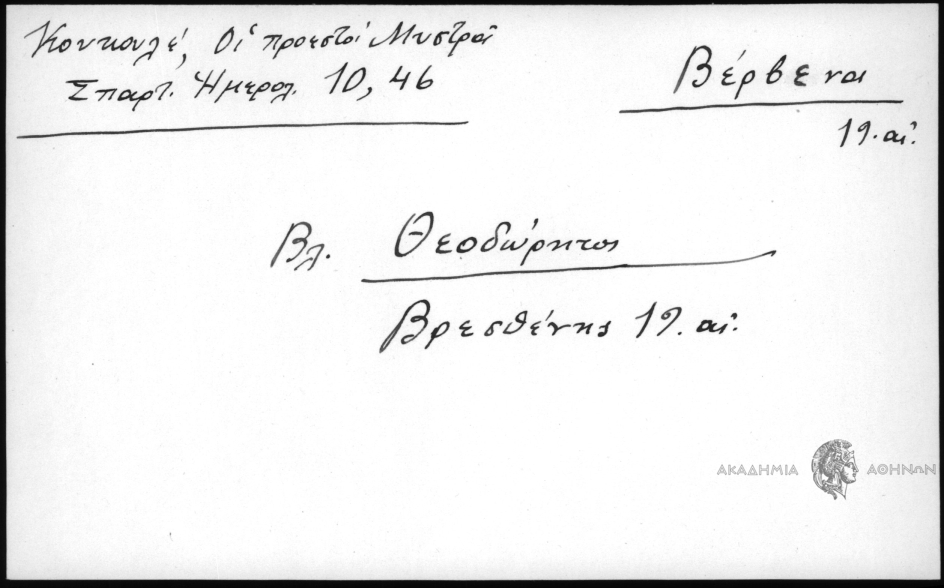 Κουκουλέ, Οἱ προεστοί Μυστρᾶ
Σπαρτ. Ἡμερολ. 10, 46
Βέρβενα
19. αἰ.
Βλ. Θεοδώρητος
Βρεσθένης 19. αἰ.
ΑΚΑΔΗΜΙΑ ΑΘΗΝΩΝ